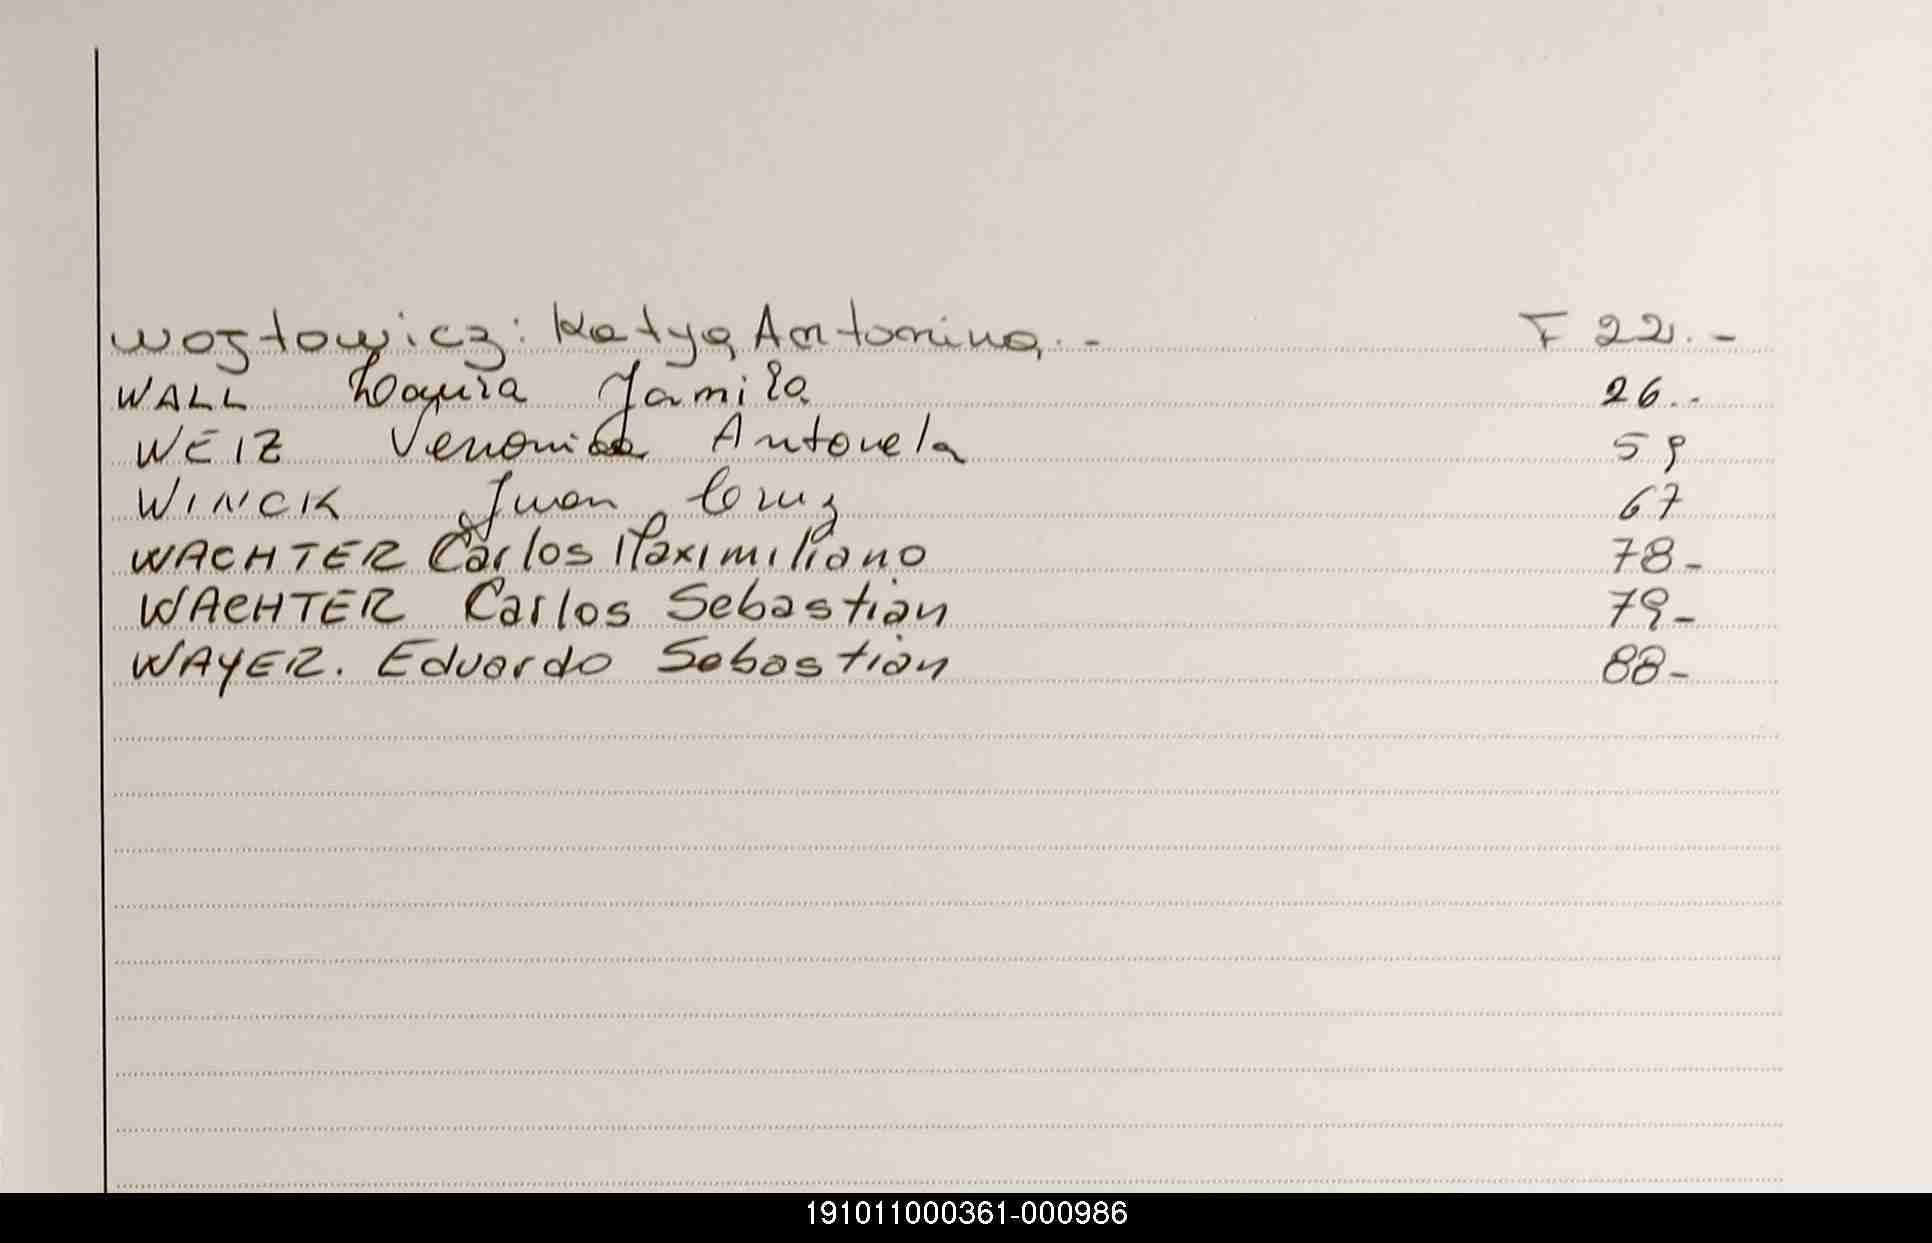 Wojtowicz: Katya Antonina.- F 22.-
WALL Yamila 26..
WEIZ Veronica Antonela 59
WINCK Juan Cruz 67
WACHTER Carlos Maximiliano 78-
WACHTER Carlos Sebastián 79-
WAYER. Eduardo Sebastián 88-
191011000361-000986